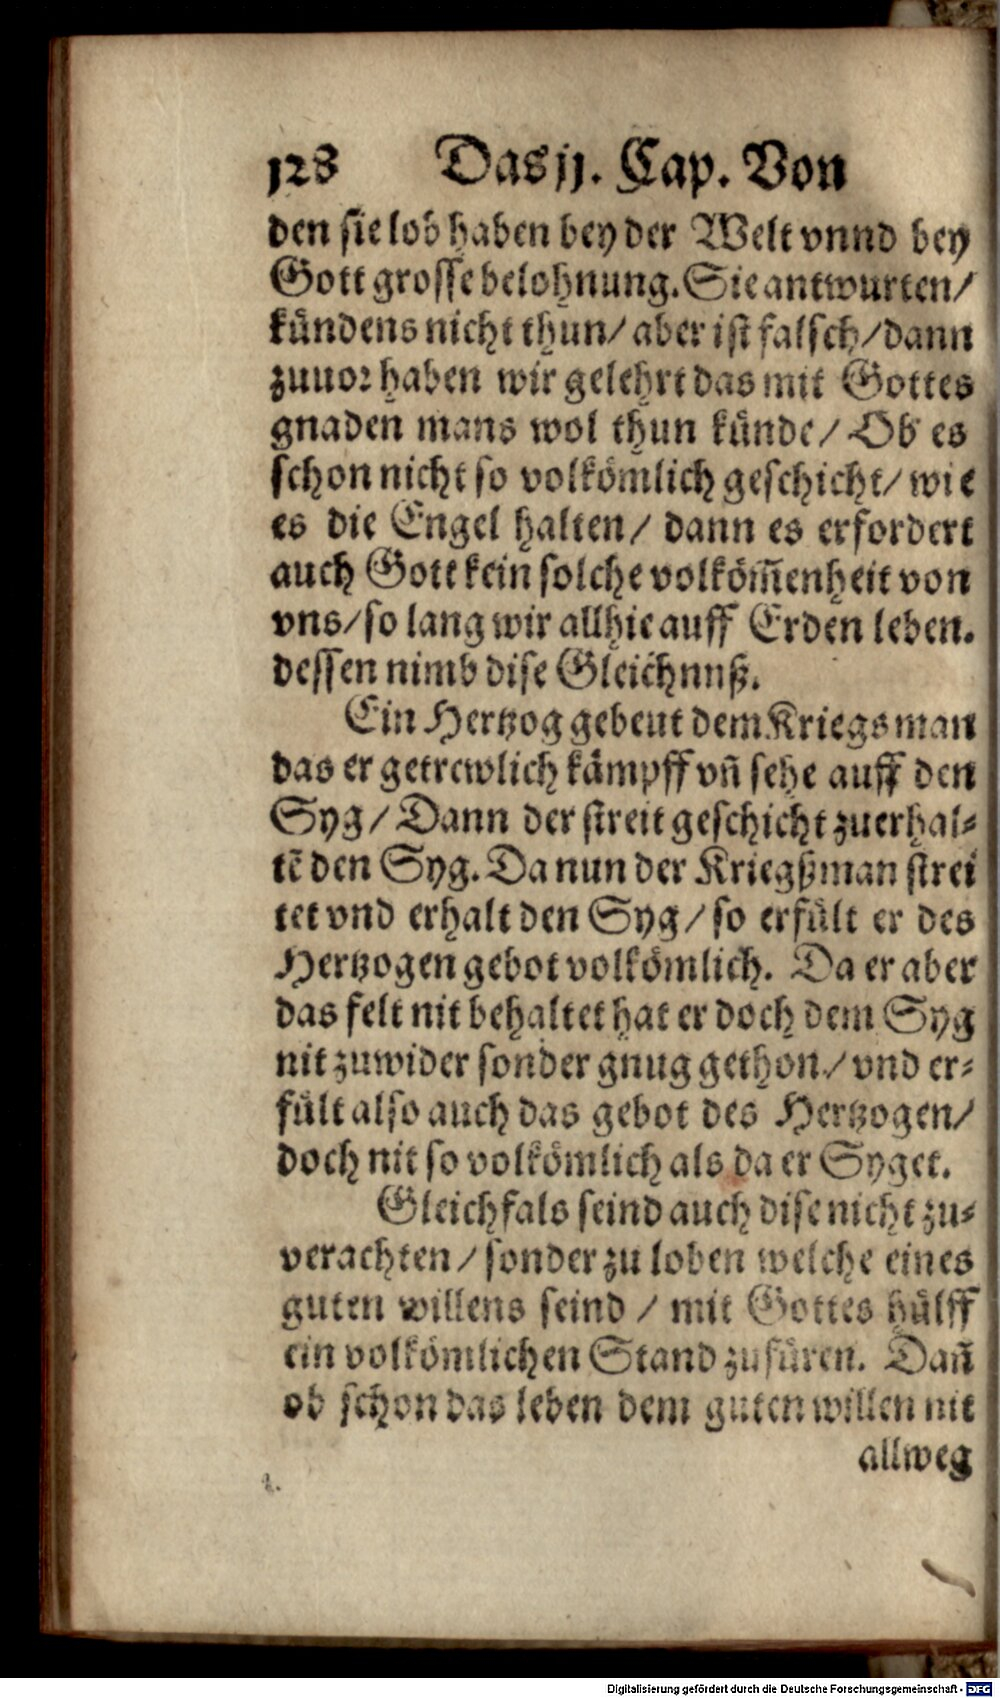 128 Das jj. Cap. Von
den sie lob haben bey der Welt vnnd bey
Gott grosse belohnung. Sie antwurten/
kündens nicht thun/ aber ist falsch/ dann
zuuor haben wir gelehrt das mit Gottes
gnaden mans wol thun künde/ Ob es
schon nicht so volkömlich geschicht/ wie
es die Engel halten/ dann es erfordert
auch Gott kein solche volköm̃enheit von
vns/ so lang wir allhie auff Erden leben.
dessen nimb dise Gleichnuß.
Ein Hertzog gebeut dem Kriegsman
das er getrewlich kämpff vñ sehe auff den
Syg/ Dann der streit geschicht zuerhal-
tẽ den Syg. Da nun der Kriegßman strei
tet vnd erhalt den Syg/ so erfült er des
Hertzogen gebot volkömlich. Da er aber
das felt nit behaltet hat er doch dem Syg
nit zuwider sonder gnug gethon/ vnd er-
fült also auch das gebot des Hertzogen/
doch nit so volkömlich als da er Syget.
Gleichfals seind auch dise nicht zu-
verachten/ sonder zu loben welche eines
guten willens seind / mit Gottes hülff
ein volkömlichen Stand zufüren. Dañ
ob schon das leben dem guten willen nit
allweg
Digitalisierung gefördert durch die Deutsche Forschungsgemeinschaft - DFG